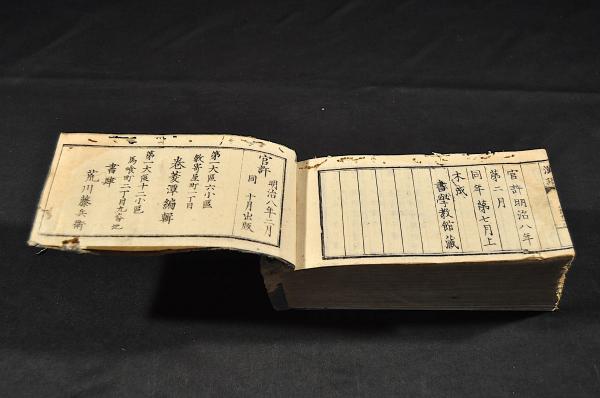 官許明治八年
第二月
同年第七月上
木成
書學教館藏
官許 明治八年二月
同 十月出版
第一大區六小區
數寄屋町一丁目
卷菱潭編輯
第一大區十二小區
馬喰町二丁目九番地
書肆
荒川藤兵衛